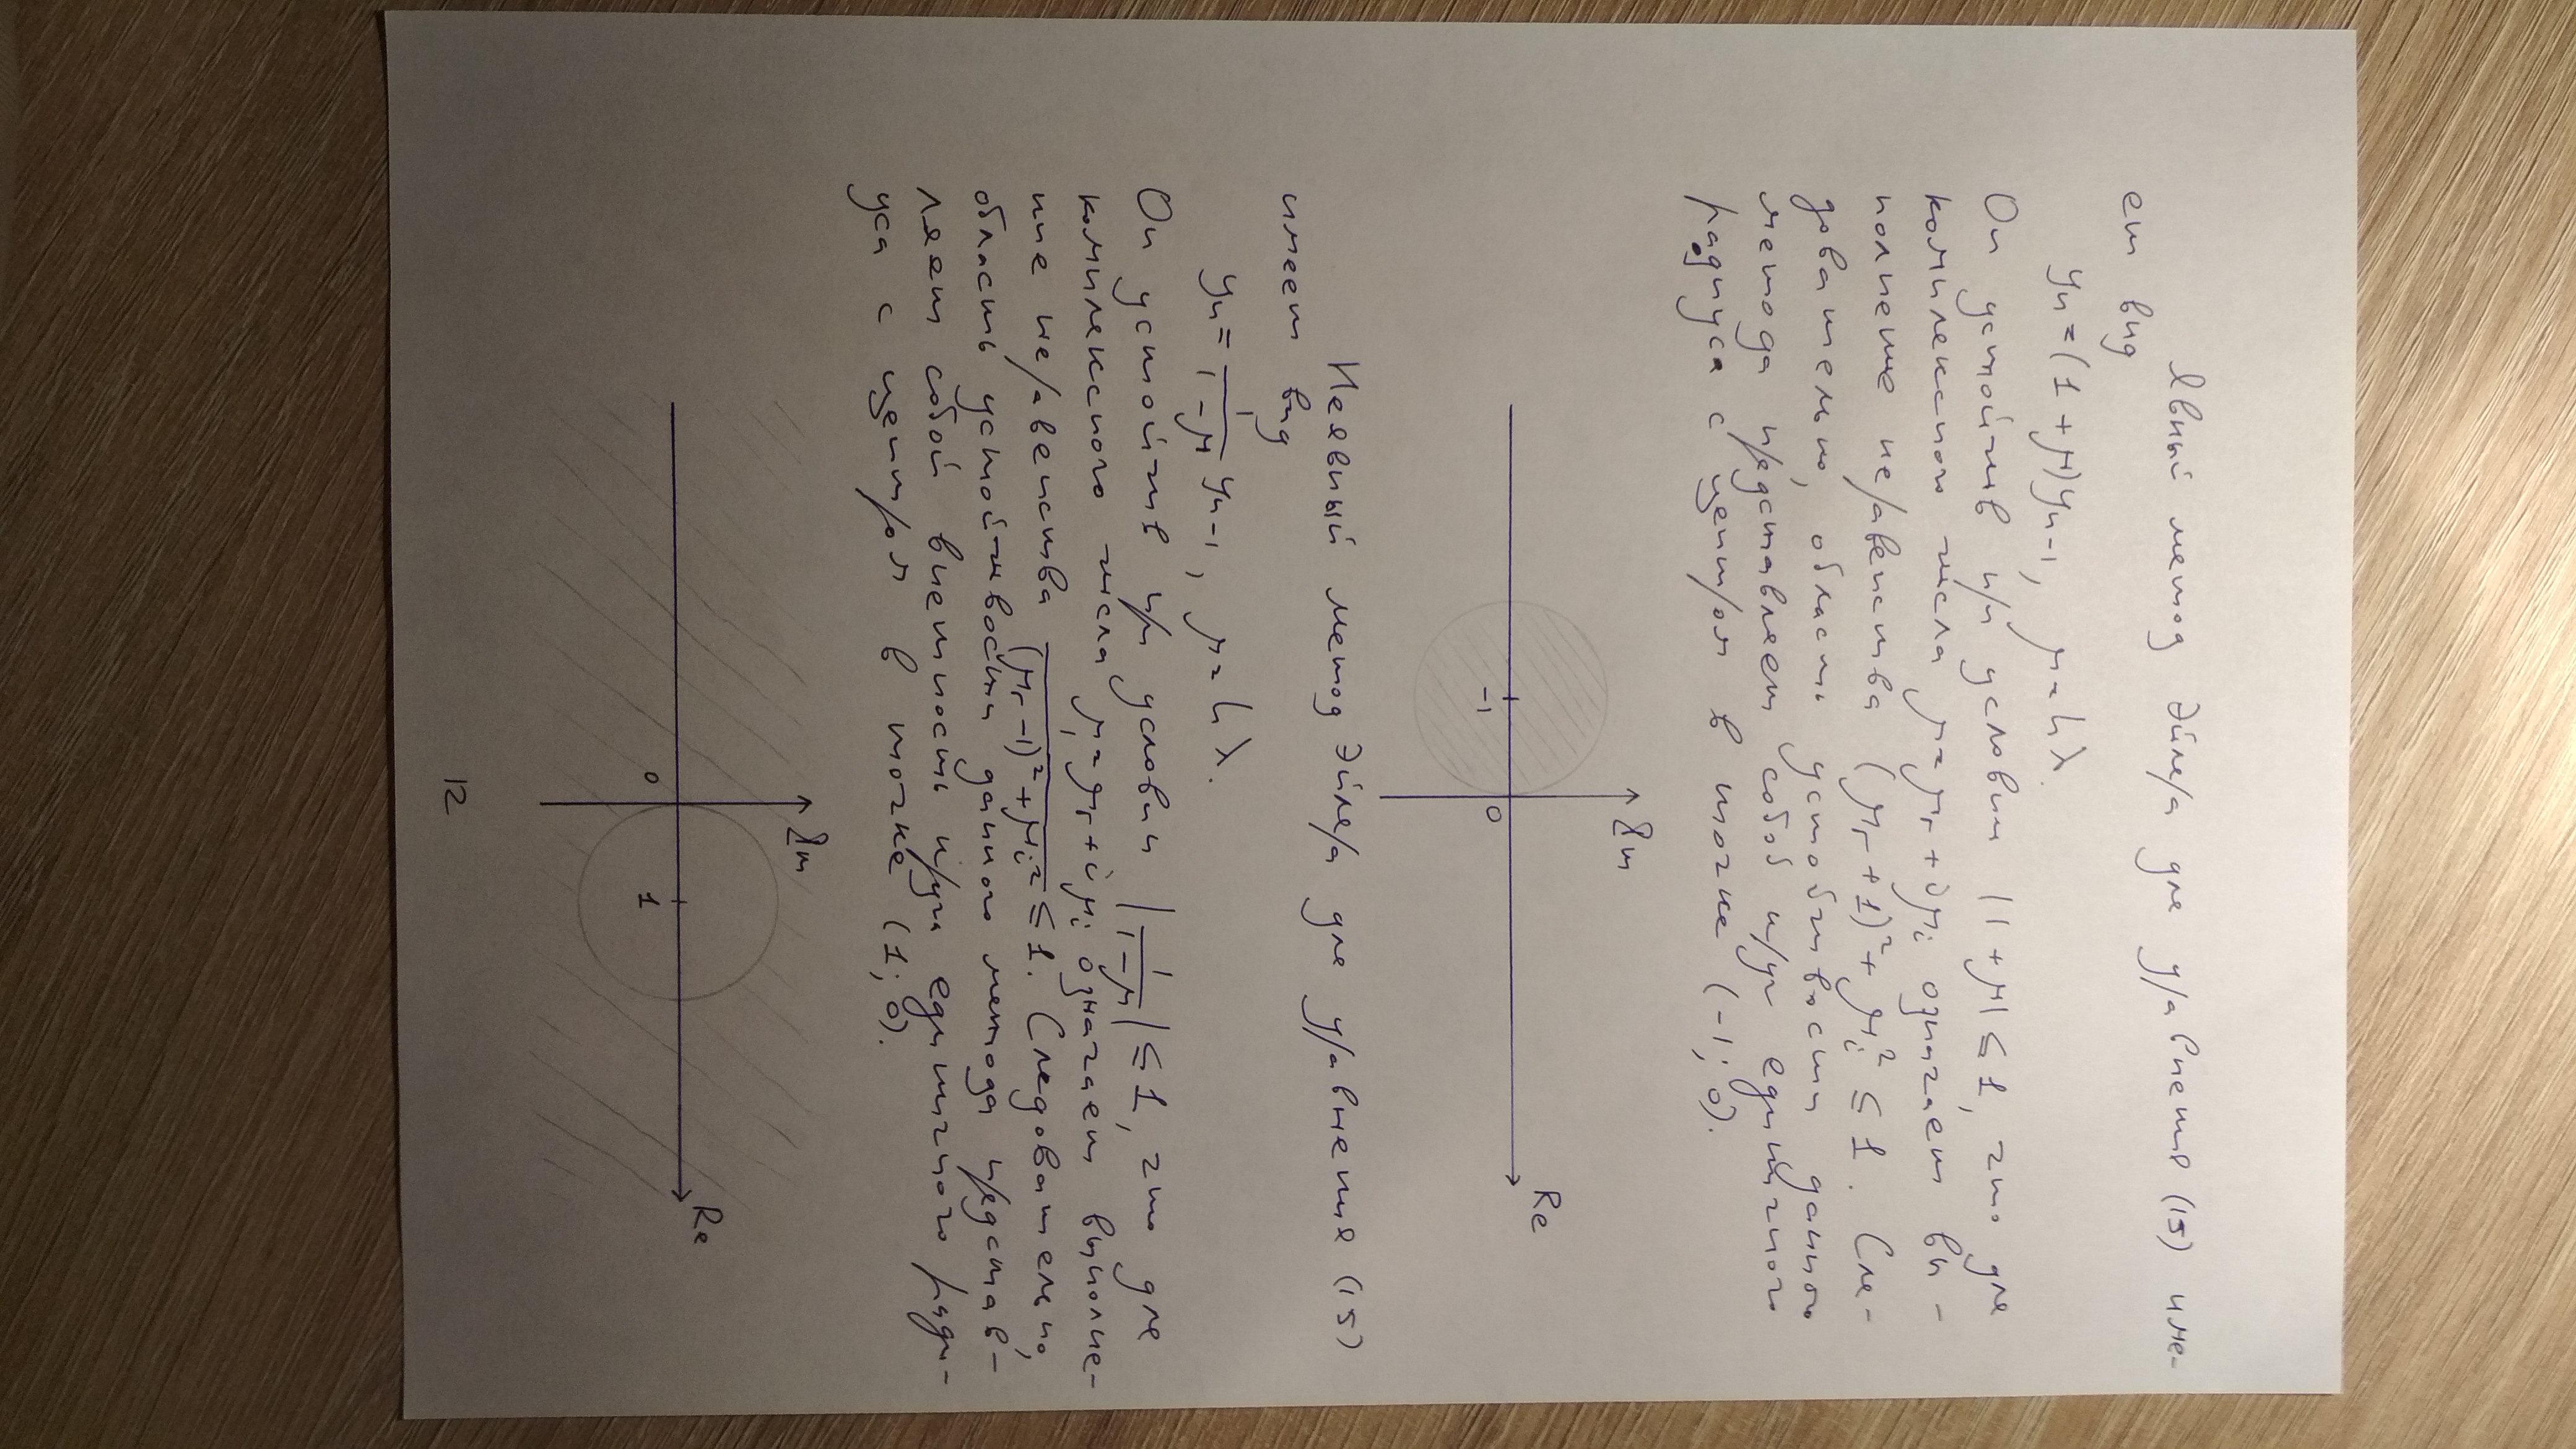 Явный метод Эйлера для уравнения (15) име-
ет вид
yₙ = (1 + μ)yₙ₋₁, μ = hλ.
Он устойчив при условии |1 + μ| ≤ 1, что для
комплексного числа μ = μᵣ + iμᵢ означает вы-
полнение неравенства (μᵣ + 1)² + μᵢ² ≤ 1. Сле-
довательно, область устойчивости данного
метода представляет собой круг единичного
радиуса с центром в точке (-1; 0).
Im
Re
-1 0
Неявный метод Эйлера для уравнения (15)
имеет вид
yₙ = 1/(1 - μ) yₙ₋₁, μ = hλ.
Он устойчив при условии |1/(1 - μ)| ≤ 1, что для
комплексного числа μ = μᵣ + iμᵢ означает выполне-
ние неравенства 1/((μᵣ - 1)² + μᵢ²) ≤ 1. Следовательно,
область устойчивости данного метода представ-
ляет собой внешность круга единичного ради-
уса с центром в точке (1; 0).
Im
Re
0 1
12